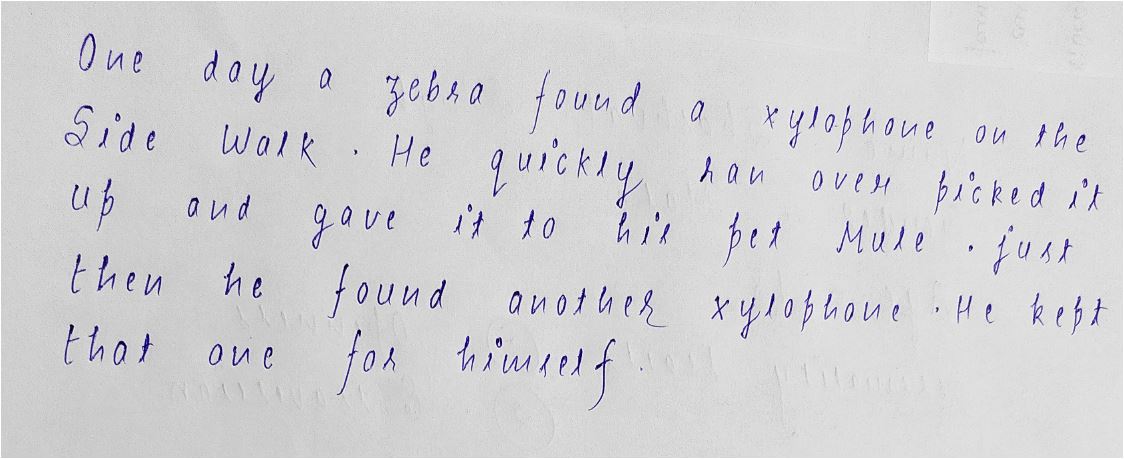 One day a zebra found a xylophone on the
Side Walk. He quickly ran over picked it
up and gave it to his pet Mule. just
then he found another xylophone. He kept
that one for himself.